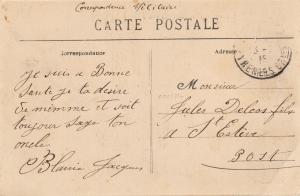 Correspondance Militaire
CARTE POSTALE
Correspondance
Adresse
Je suis a Bonne
Sante je ta desire
de mimme et soit
toujour sage ton
oncle
Blaise Jacques
Monsieur
Jules Delcos fils
a St Estève